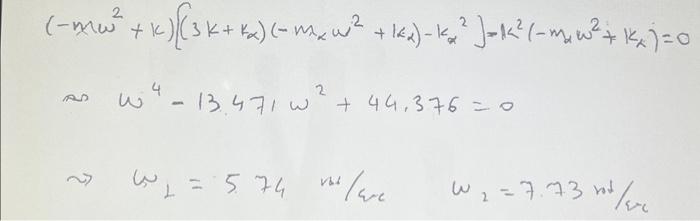 (-mω² + k)[(3k + kα)(-mαω² + kα) - kα²] - k²(-mαω² + kα) = 0
⇝ ω⁴ - 13.471 ω² + 44.376 = 0
⇝ ω₁ = 5.74 rad/sec ω₂ = 7.73 rad/sec